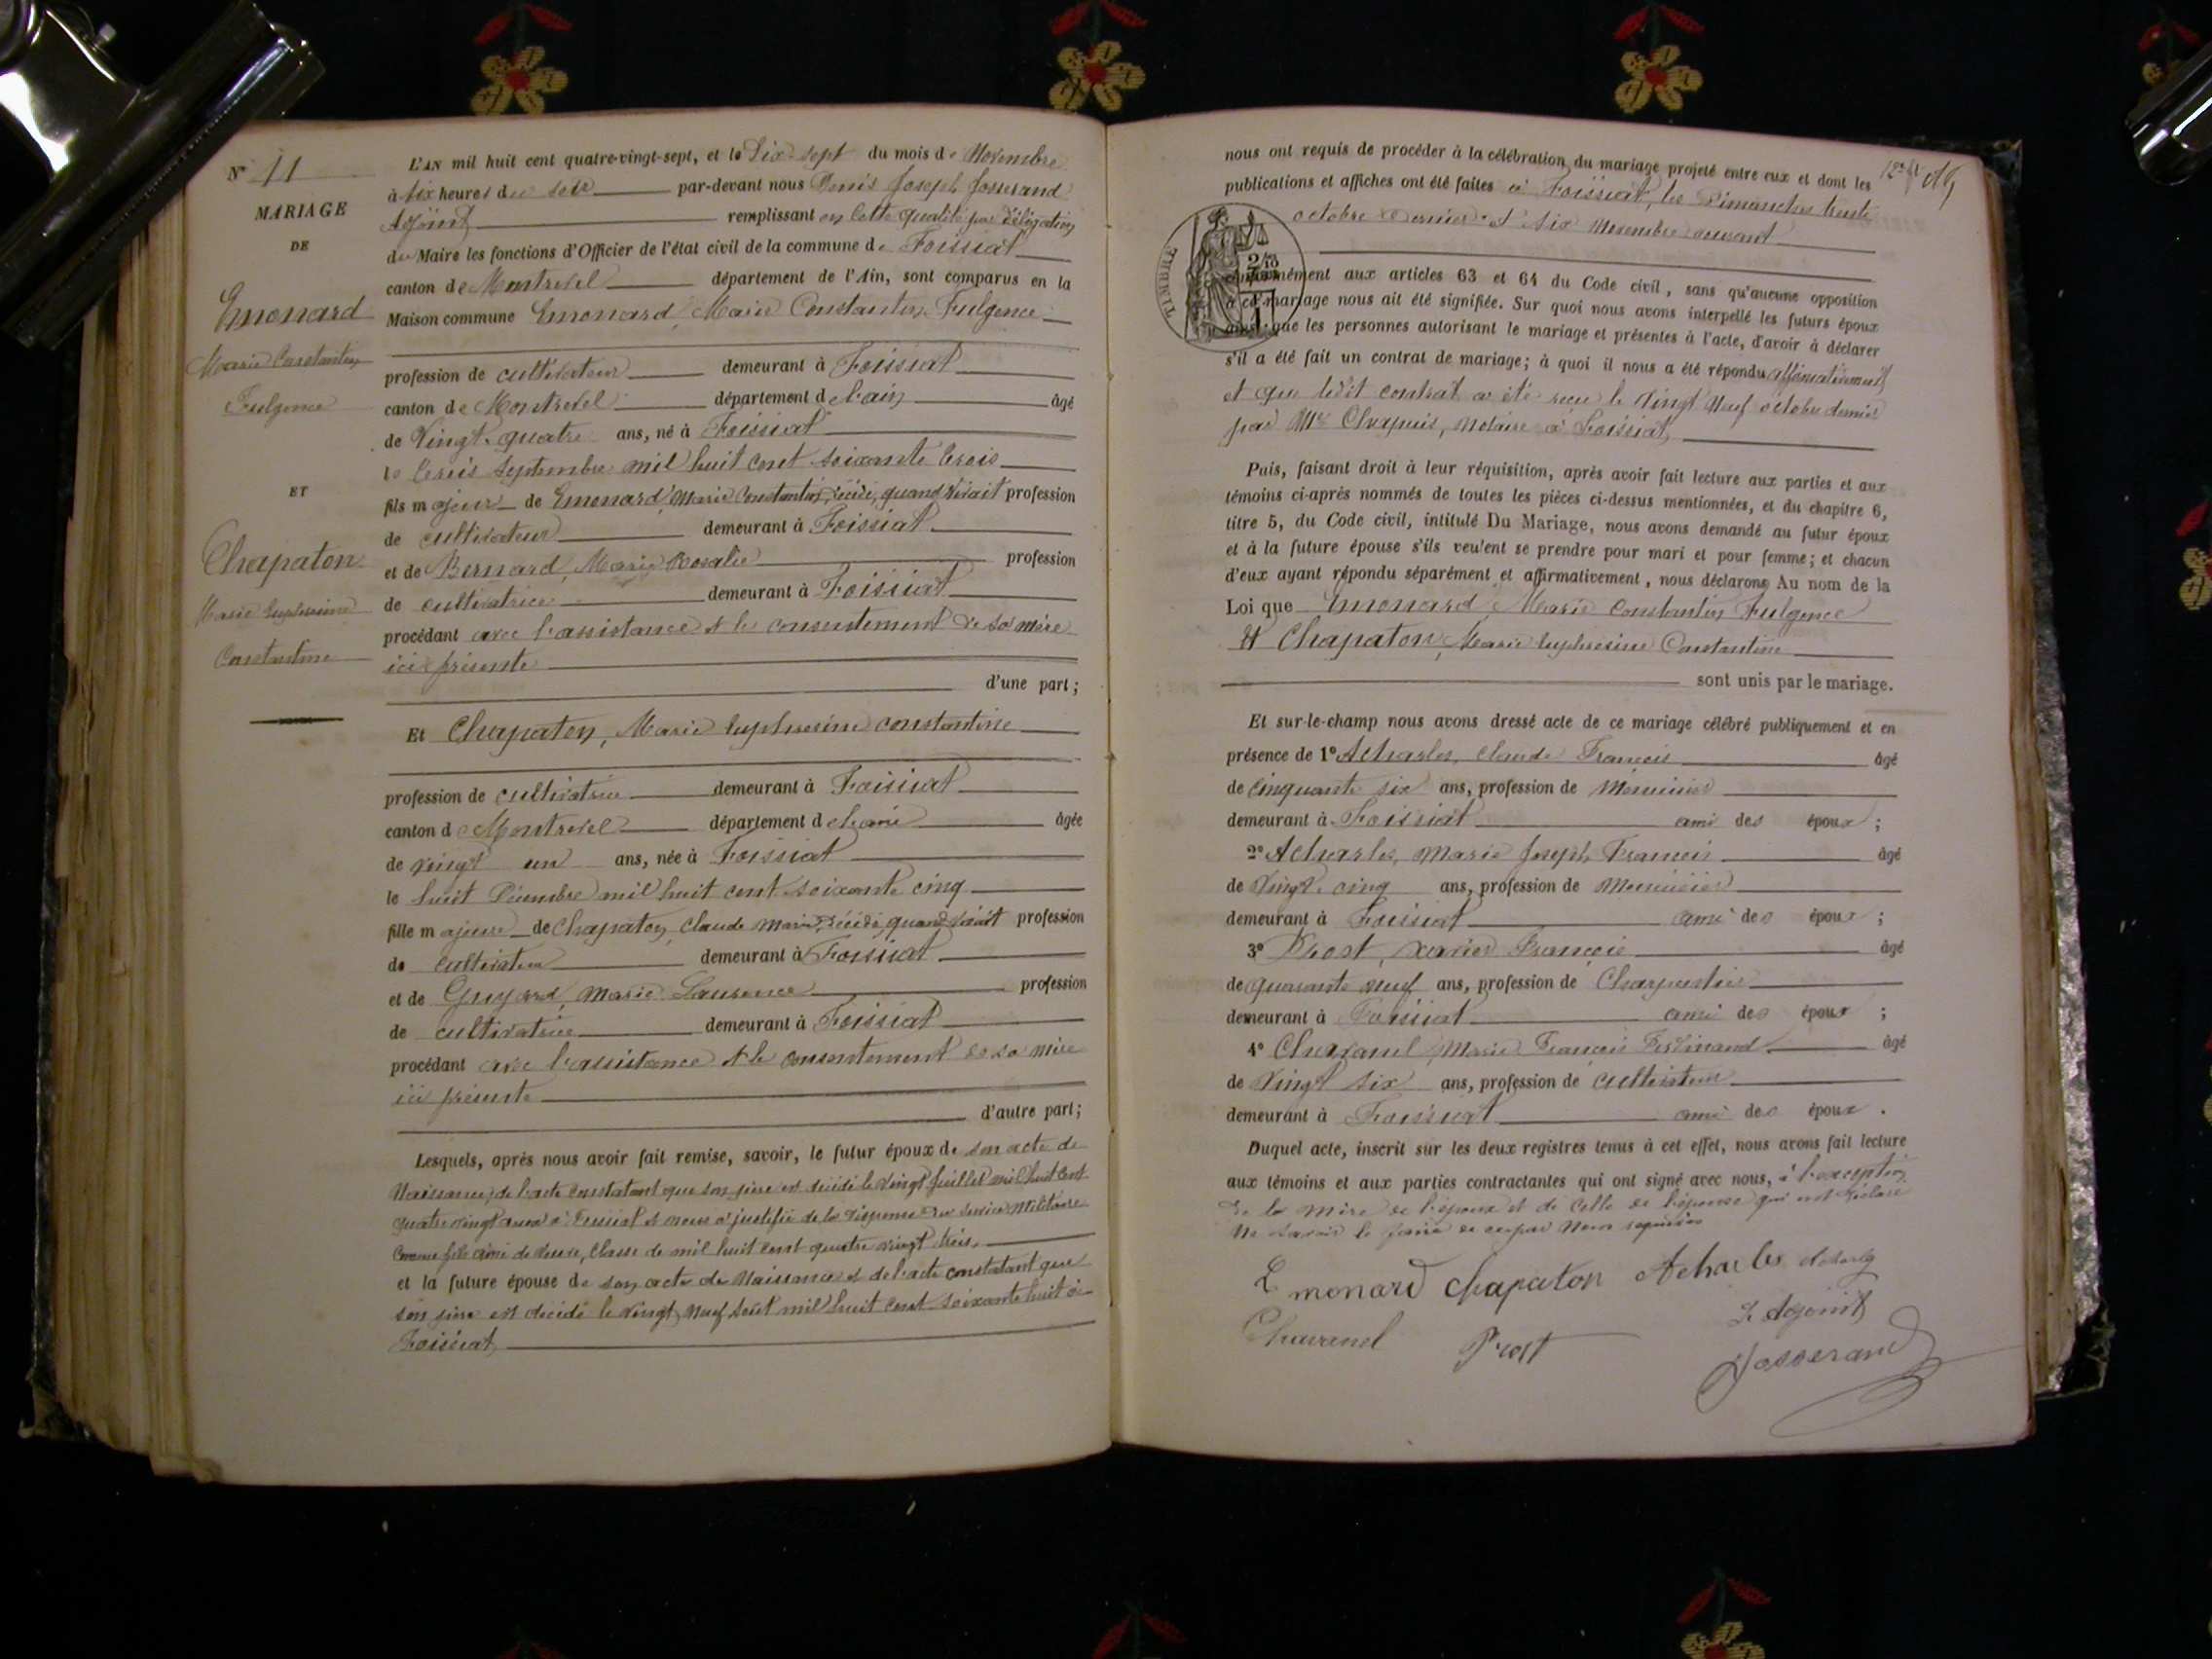 N° 11
MARIAGE
DE
Emonard
Marie Constantin
Fulgence
ET
Chapaton
Marie Euphrosine
Constantine
L'AN mil huit cent quatre-vingt-sept, et le Dix-sept du mois de Novembre
à six heures du soir par-devant nous Denis Joseph Josserand
Adjoint remplissant en cette qualité par délégation
du Maire les fonctions d'Officier de l'état civil de la commune de Foissiat
canton de Montrevel département de l'Ain, sont comparus en la
Maison commune Emonard, Marie Constantin Fulgence
profession de cultivateur demeurant à Foissiat
canton de Montrevel département de l'ain âgé
de Vingt-quatre ans, né à Foissiat
le trois Septembre mil huit cent soixante trois
fils majeur de Emonard, Marie Constantin, décédé, quand vivait profession
de cultivateur demeurant à Foissiat
et de Bernard, Marie Rosalie profession
de cultivatrice demeurant à Foissiat
procédant avec l'assistance & le consentement de sa mère
ici présente
d'une part;
Et Chapaton, Marie Euphrosine Constantine
profession de cultivatrice demeurant à Foissiat
canton de Montrevel département de l'ain âgée
de vingt un ans, née à Foissiat
le huit Décembre mil huit cent soixante cinq
fille majeure de Chapaton, Claude Marie, décédé, quand vivait profession
de cultivateur demeurant à Foissiat
et de Guyard, Marie Laurence profession
de cultivatrice demeurant à Foissiat
procédant avec l'assistance & le consentement de sa mère
ici présente
d'autre part;
Lesquels, après nous avoir fait remise, savoir, le futur époux de son acte de
Naissance, de l'acte constatant que son père est décédé le vingt Juillet mil huit cent
quatre vingt à Foissiat & nous a justifié de la dispense du service militaire
comme fils aîné de veuve, classe de mil huit cent quatre vingt trois,
et la future épouse de son acte de Naissance & de l'acte constatant que
son père est décédé le vingt neuf Août mil huit cent soixante huit à
Foissiat
nous ont requis de procéder à la célébration du mariage projeté entre eux et dont les
publications et affiches ont été faites à Foissiat, les Dimanches trente
octobre dernier & six Novembre courant
TIMBRE
conformément aux articles 63 et 64 du Code civil, sans qu'aucune opposition
à ce mariage nous ait été signifiée. Sur quoi nous avons interpellé les futurs époux
ainsi que les personnes autorisant le mariage et présentes à l'acte, d'avoir à déclarer
s'il a été fait un contrat de mariage; à quoi il nous a été répondu affirmativement
et que ledit contrat a été reçu le vingt neuf octobre dernier
par Me Chapuis, notaire à Foissiat
Puis, faisant droit à leur réquisition, après avoir fait lecture aux parties et aux
témoins ci-après nommés de toutes les pièces ci-dessus mentionnées, et du chapitre 6,
titre 5, du Code civil, intitulé Du Mariage, nous avons demandé au futur époux
et à la future épouse s'ils veulent se prendre pour mari et pour femme; et chacun
d'eux ayant répondu séparément et affirmativement, nous déclarons Au nom de la
Loi que Emonard, Marie Constantin Fulgence
Et Chapaton, Marie Euphrosine Constantine
sont unis par le mariage.
Et sur-le-champ nous avons dressé acte de ce mariage célébré publiquement et en
présence de 1° Acharles, Claude François âgé
de cinquante six ans, profession de Menuisier
demeurant à Foissiat ami des époux;
2° Acharles, Marie Joseph François âgé
de Vingt-cinq ans, profession de Menuisier
demeurant à Foissiat ami des époux;
3° Prost, Xavier François âgé
de quarante neuf ans, profession de Charpentier
demeurant à Foissiat ami des époux;
4° Chavanel, Marie François Ferdinand âgé
de Vingt six ans, profession de cultivateur
demeurant à Foissiat ami des époux.
Duquel acte, inscrit sur les deux registres tenus à cet effet, nous avons fait lecture
aux témoins et aux parties contractantes qui ont signé avec nous, à l'exception
de la mère de l'époux et de celle de l'épouse qui ont déclaré
ne savoir le faire de ce par nous requises
Emonard Chapaton Acharles
Chavanel Prost L'Adjoint
Josserand